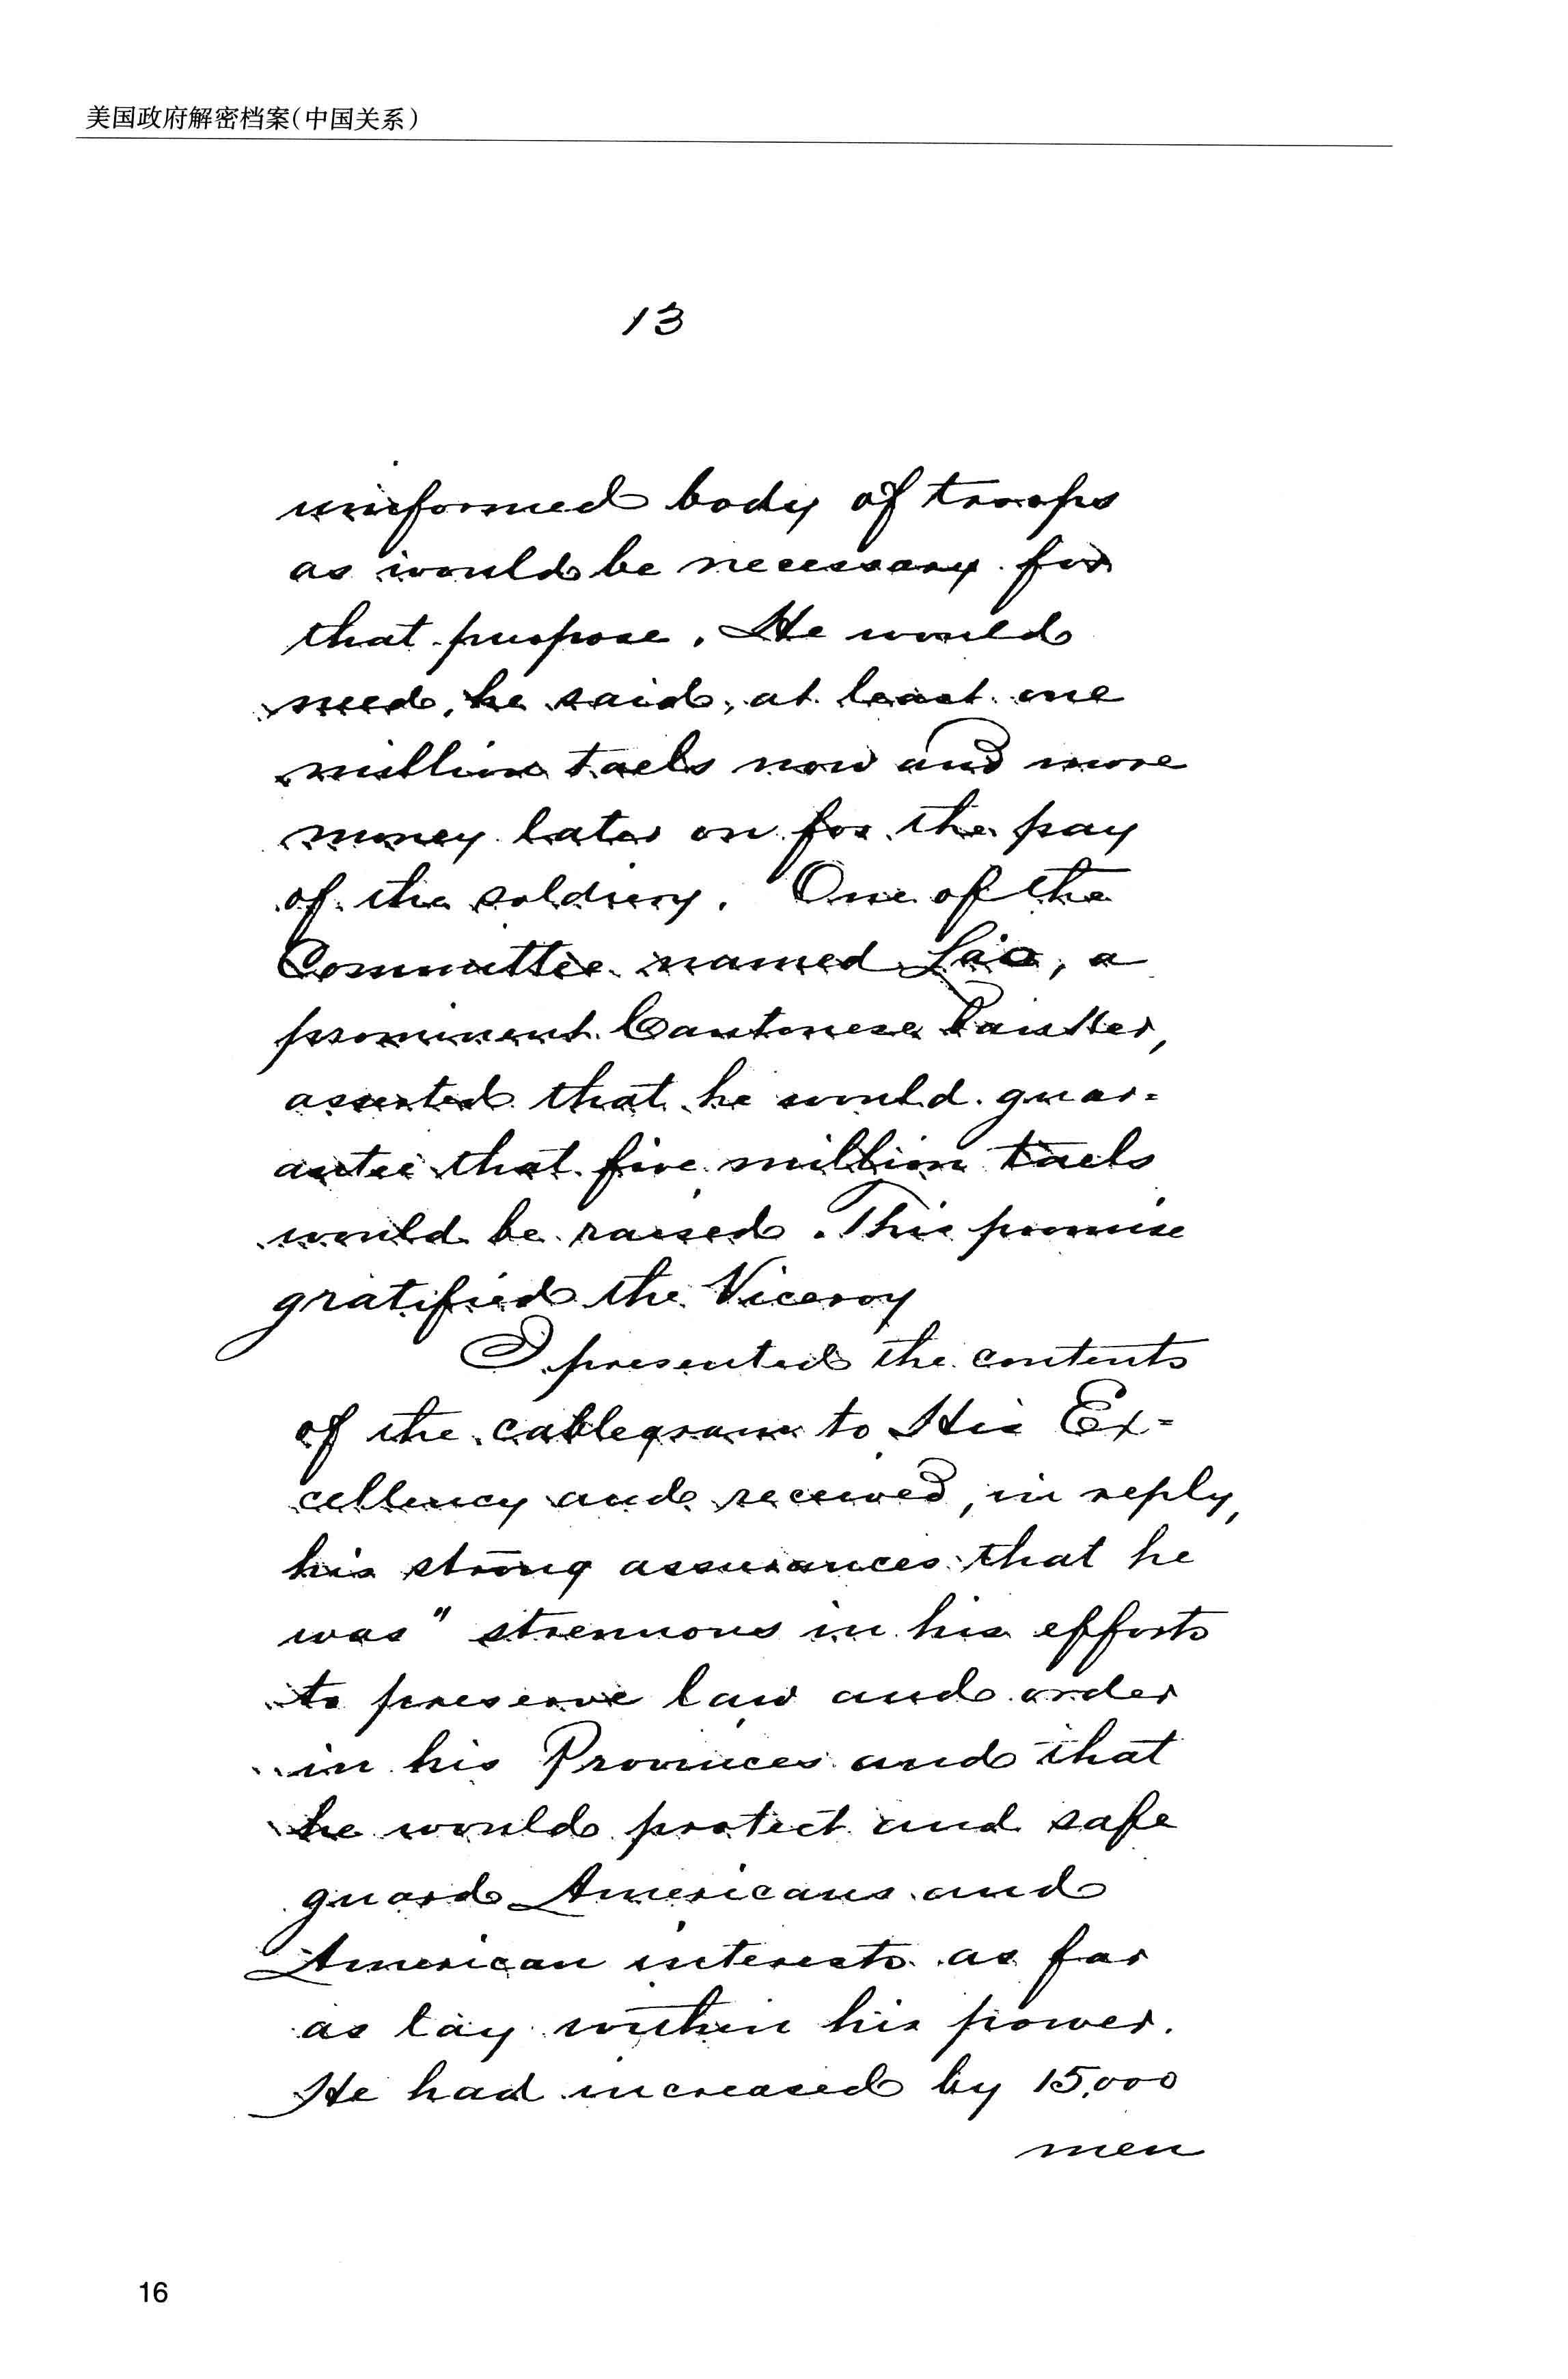 美国政府解密档案(中国关系)
13
uniformed body of troops
as would be necessary for
that purpose. He would
need, he said, at least one
million taels now and more
money later on for the pay
of the soldiery. One of the
Committee named Lao, a
prominent Cantonese
asserted that he would guar=
antee that five million taels
would be raised. This promise
gratified the Viceroy
I presented the contents
of the cablegram to His Ex=
cellency and received, in reply,
his strong assurances that he
was " strenuous in his efforts
to preserve law and order
in his Provinces and that
he would protect and safe
guard Americans and
American interests as far
as lay within his power.
He had increased by 15,000
men
16